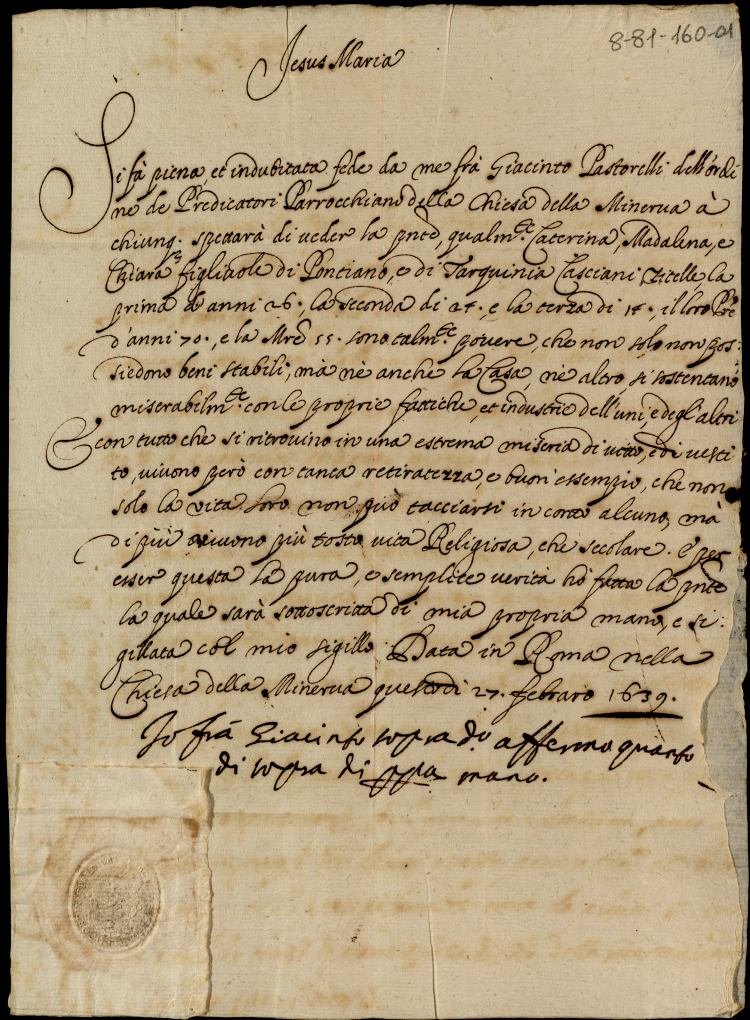 8-81-160-01
Jesus Maria
Si fà piena, et indubitata fede da me frà Giacinto Pastorelli dell'ordi
ne de Predicatori Parrocchiano della Chiesa della Minerva à
chiunq. spettarà di veder la pnte, qualmte Caterina, Madalena, e
Chiara figliuole di Pontiano, e di Tarquinia Casciani Zitelle, la
prima d'anni 26., la seconda di 2 . e la terza di 1 . il loro Pre
d'anni 70., e la Mre 55. sono talmte povere, che non solo non pos:
siedono beni stabili, mà nè anche la Casa, nè altro, si sostentano
miserabilmte con le proprie fattiche, et industrie dell'uni, e degl'altri
E con tutto che si ritrovino in una estrema miseria di vitto, e di vesti
to, vivono però con tanta retiratezza, e buon'essempio, che non
solo la vita loro non può tacciarsi in conto alcuno, mà
di più vivono più tosto vita Religiosa, che secolare. E per
esser questa la pura, e semplice verità hò fatta la pnte
la quale sarà sottoscritta di mia propria mano, e si:
gillata col mio sigillo. Data in Roma nella
Chiesa della Minerva questo dì 27. febraro 1639.
Io frà Giacinto sopradº affermo quanto
di sopra di ppia mano.